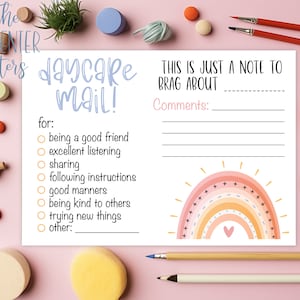 the
CENTER
daycare
mail!
for:
being a good friend
excellent listening
sharing
following instructions
good manners
being kind to others
trying new things
other:
THIS IS JUST A NOTE TO
BRAG ABOUT
Comments: